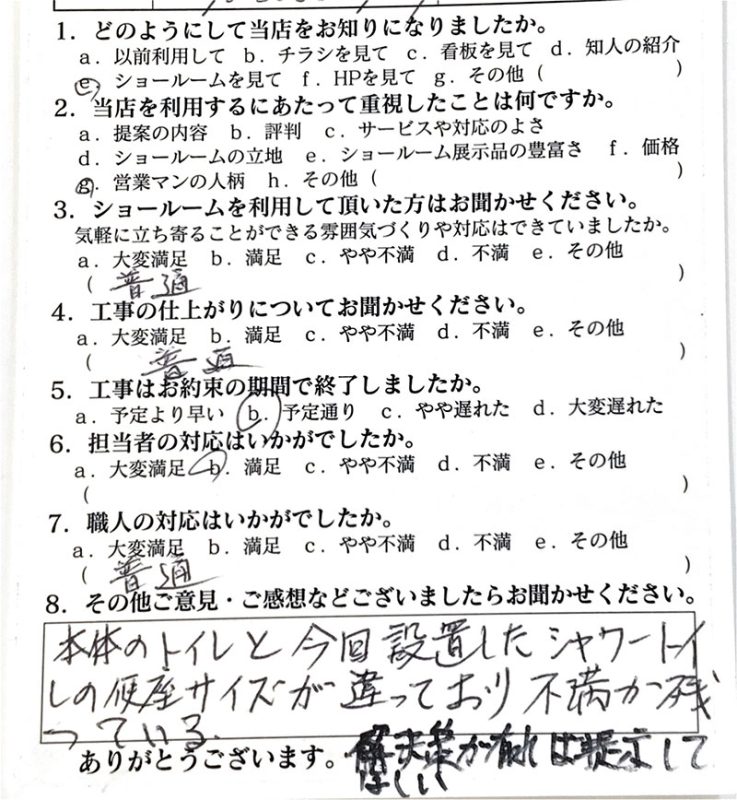 1．どのようにして当店をお知りになりましたか。
a．以前利用して b．チラシを見て c．看板を見て d．知人の紹介
e．ショールームを見て f．HPを見て g．その他（　　　）
2．当店を利用するにあたって重視したことは何ですか。
a．提案の内容 b．評判 c．サービスや対応のよさ
d．ショールームの立地 e．ショールーム展示品の豊富さ f．価格
g．営業マンの人柄 h．その他（　　　）
3．ショールームを利用して頂いた方はお聞かせください。
気軽に立ち寄ることができる雰囲気づくりや対応はできていましたか。
a．大変満足 b．満足 c．やや不満 d．不満 e．その他
（普通　　　）
4．工事の仕上がりについてお聞かせください。
a．大変満足 b．満足 c．やや不満 d．不満 e．その他
（普通　　　）
5．工事はお約束の期間で終了しましたか。
a．予定より早い b．予定通り c．やや遅れた d．大変遅れた
6．担当者の対応はいかがでしたか。
a．大変満足 b．満足 c．やや不満 d．不満 e．その他
（　　　）
7．職人の対応はいかがでしたか。
a．大変満足 b．満足 c．やや不満 d．不満 e．その他
（普通　　　）
8．その他ご意見・ご感想などございましたらお聞かせください。
本体のトイレと今回設置したシャワートイ
レの便座サイズが違っており不満が残
っている.
ありがとうございます。
解決策が有れば提示して
ほしい